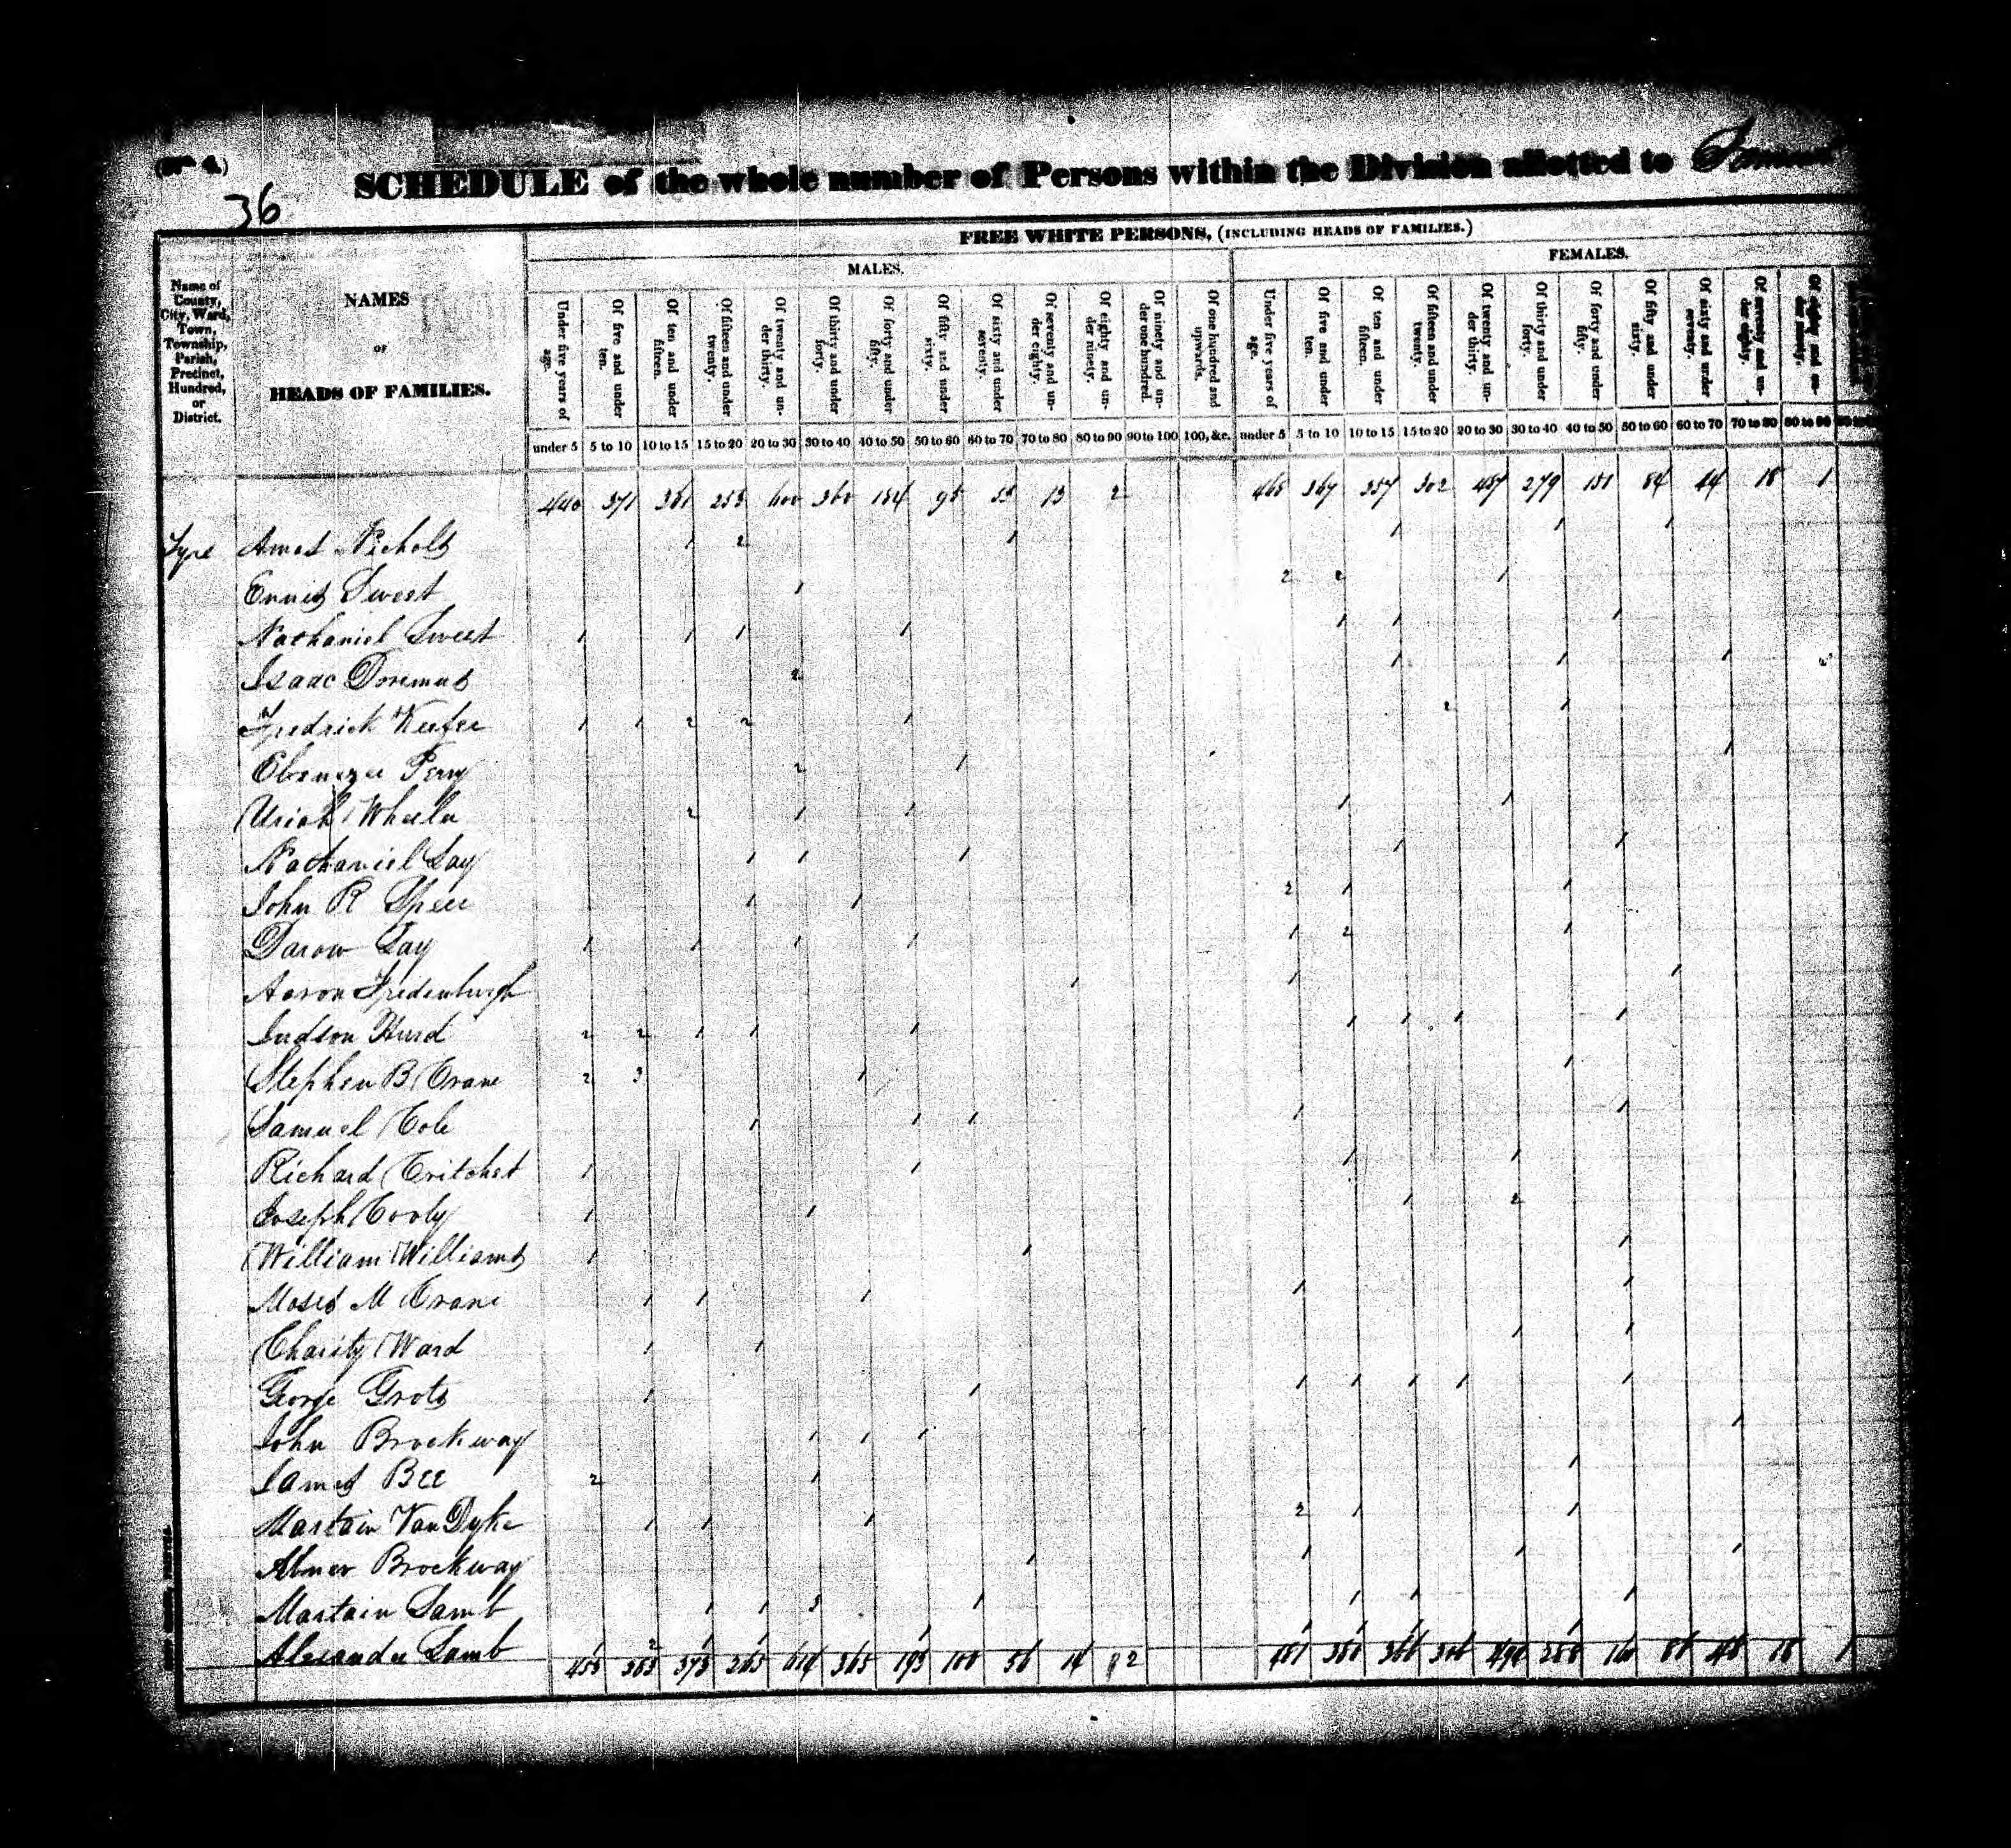 (No 4.)
36
SCHEDULE of the whole number of Persons within the Division allotted to
FREE WHITE PERSONS, (INCLUDING HEADS OF FAMILIES.)
MALES. FEMALES.
Name of County, City, Ward, Town, Township, Parish, Precinct, Hundred, or District.
NAMES OF HEADS OF FAMILIES.
Under five years of age. Of five and under ten. Of ten and under fifteen. Of fifteen and under twenty. Of twenty and under thirty. Of thirty and under forty. Of forty and under fifty. Of fifty and under sixty. Of sixty and under seventy. Of seventy and under eighty. Of eighty and under ninety. Of ninety and under one hundred. Of one hundred and upwards. Under five years of age. Of five and under ten. Of ten and under fifteen. Of fifteen and under twenty. Of twenty and under thirty. Of thirty and under forty. Of forty and under fifty. Of fifty and under sixty. Of sixty and under seventy. Of seventy and under eighty. Of eighty and under ninety.
under 5 5 to 10 10 to 15 15 to 20 20 to 30 30 to 40 40 to 50 50 to 60 60 to 70 70 to 80 80 to 90 90 to 100 100, &c. under 5 5 to 10 10 to 15 15 to 20 20 to 30 30 to 40 40 to 50 50 to 60 60 to 70 70 to 80 80 to 90
440 371 361 253 600 360 184 95 53 13 2 468 367 357 302 487 279 151 84 44 18 1
Tyre Amos Nichols 1 2 1 1 1 1
Ennis Sweet 1 2 2 1
Nathaniel Sweet 1 1 1 1 1 1 1
Isaac Doremus 2 1 1 1
Fredrick Keefer 1 1 2 2 1 2 1
Ebenezer Perry 2 1 1
Uriah Wheeler 2 1 1 1 1
Nathaniel Lay 1 1 1 1 1
John R Speer 1 1 2 1 1
Darow Lay 1 1 1 1 1 2 1
Aaron Fredenburgh 1 1 1
Judson Hurd 2 2 1 1 1 1 1 1 1
Stephen B Crane 2 3 1 1
Samuel Cole 1 1 1 1 1
Richard Critchet 1 1 1 1
Joseph Cooly 1 1 1 2
William Williams 1 1 1
Moses M Crane 1 1 1 1 1
Charity Ward 1 1 1 1
George Grots 1 1 1 1 1 1 1
John Brockway 1 1 1 1
James Bee 2 1 1
Martain VanDyke 1 1 1 2 1 1
Abner Brockway 1 1 1 1
Martain Lamb 1 1 3 1 1 1 1
Alexander Lamb 1 2 1 1 1 1 1 1
455 383 373 265 614 365 193 100 56 14 2 481 380 366 306 494 288 160 86 48 18 1